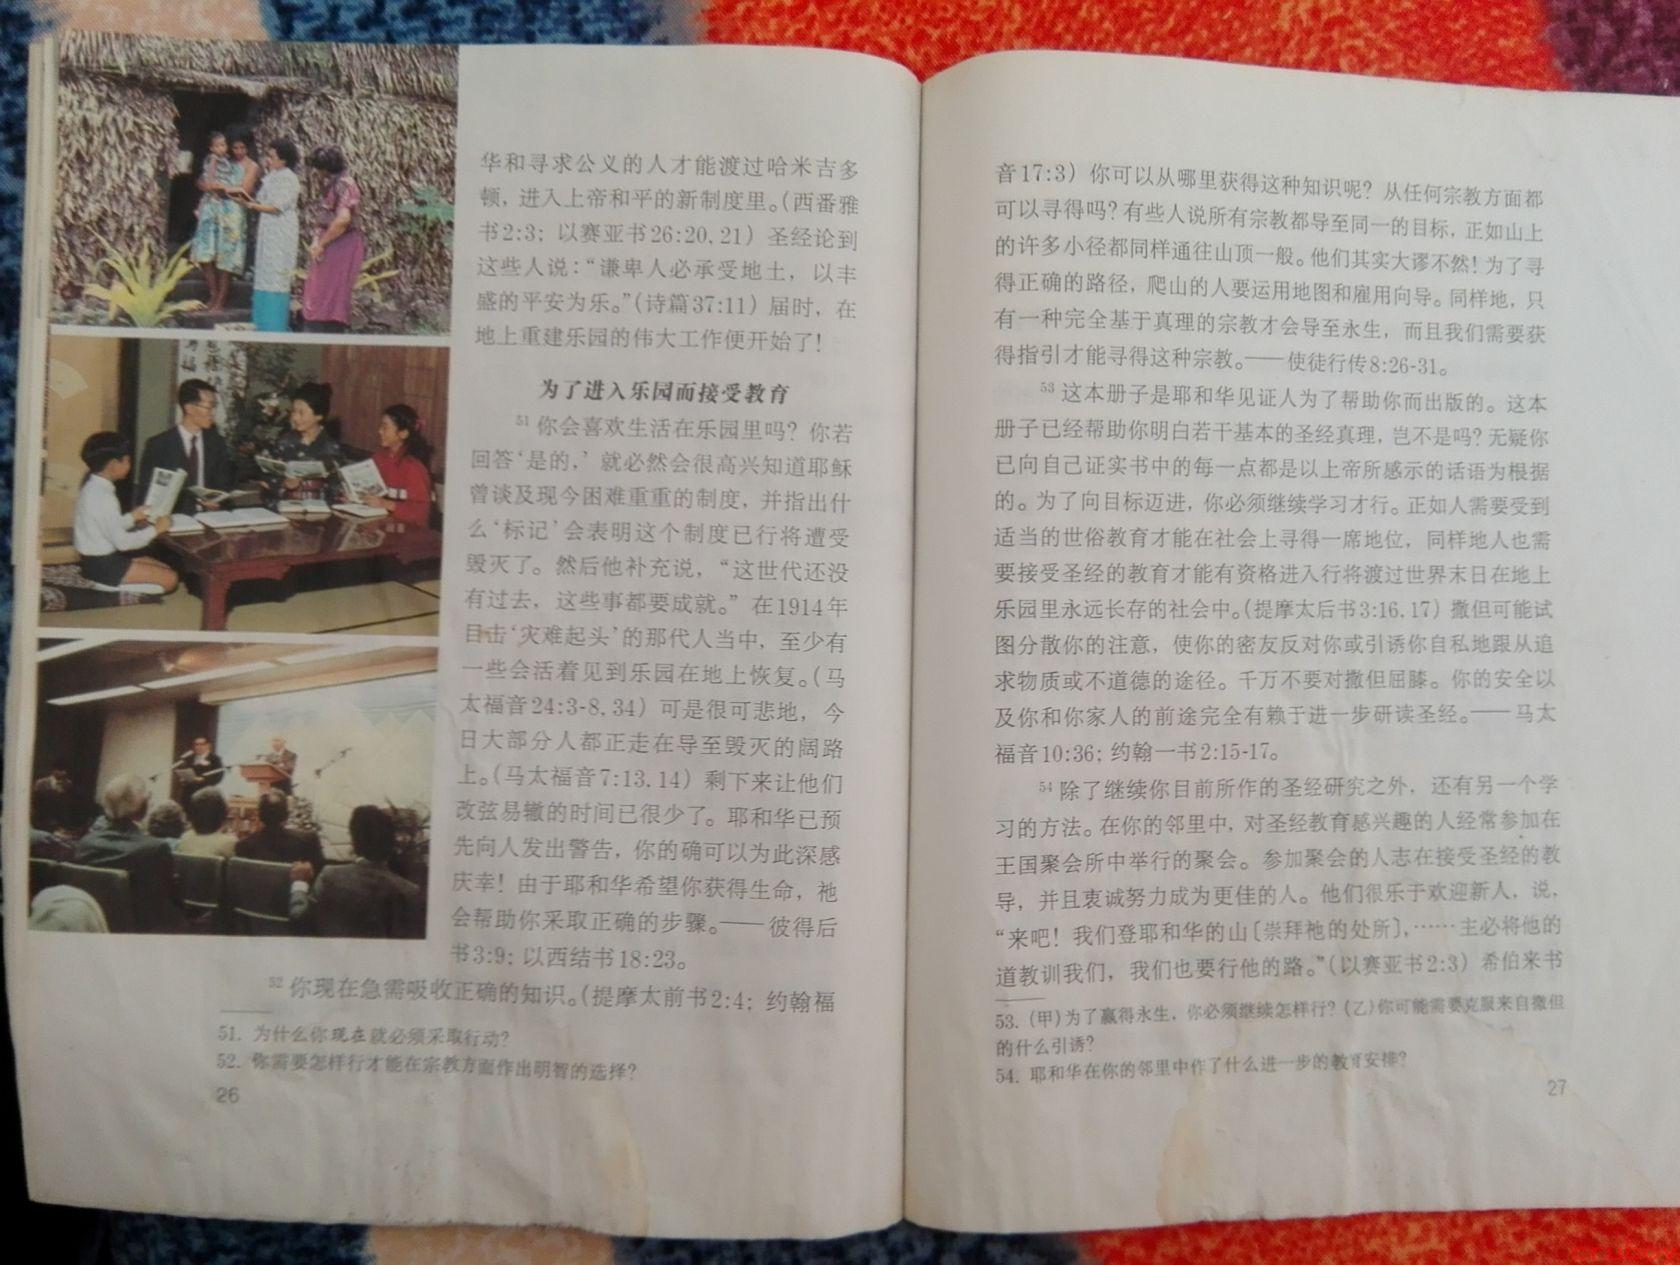 华和寻求公义的人才能渡过哈米吉多
顿，进入上帝和平的新制度里。(西番雅
书2:3；以赛亚书26:20,21）圣经论到
这些人说：“谦卑人必承受地土，以丰
盛的平安为乐。”(诗篇37:11）届时，在
地上重建乐园的伟大工作便开始了！
为了进入乐园而接受教育
51 你会喜欢生活在乐园里吗？你若
回答‘是的，’就必然会很高兴知道耶稣
曾谈及现今困难重重的制度，并指出什
么‘标记’会表明这个制度已行将遭受
毁灭了。然后他补充说，“这世代还没
有过去，这些事都要成就。”在1914年
目击‘灾难起头’的那代人当中，至少有
一些会活着见到乐园在地上恢复。(马
太福音24:3-8,34）可是很可悲地，今
日大部分人都正走在导至毁灭的阔路
上。(马太福音7:13,14）剩下来让他们
改弦易辙的时间已很少了。耶和华已预
先向人发出警告，你的确可以为此深感
庆幸！由于耶和华希望你获得生命，祂
会帮助你采取正确的步骤。——彼得后
书3:9；以西结书18:23。
52 你现在急需吸收正确的知识。(提摩太前书2:4；约翰福
51. 为什么你现在就必须采取行动？
52. 你需要怎样行才能在宗教方面作出明智的选择？
26
音17:3）你可以从哪里获得这种知识呢？从任何宗教方面都
可以寻得吗？有些人说所有宗教都导至同一的目标，正如山上
的许多小径都同样通往山顶一般。他们其实大谬不然！为了寻
得正确的路径，爬山的人要运用地图和雇用向导。同样地，只
有一种完全基于真理的宗教才会导至永生，而且我们需要获
得指引才能寻得这种宗教。——使徒行传8:26-31。
53 这本册子是耶和华见证人为了帮助你而出版的。这本
册子已经帮助你明白若干基本的圣经真理，岂不是吗？无疑你
已向自己证实书中的每一点都是以上帝所感示的话语为根据
的。为了向目标迈进，你必须继续学习才行。正如人需要受到
适当的世俗教育才能在社会上寻得一席地位，同样地人也需
要接受圣经的教育才能有资格进入行将渡过世界末日在地上
乐园里永远长存的社会中。(提摩太后书3:16,17）撒但可能试
图分散你的注意，使你的密友反对你或引诱你自私地跟从追
求物质或不道德的途径。千万不要对撒但屈膝。你的安全以
及你和你家人的前途完全有赖于进一步研读圣经。——马太
福音10:36；约翰一书2:15-17。
54 除了继续你目前所作的圣经研究之外，还有另一个学
习的方法。在你的邻里中，对圣经教育感兴趣的人经常参加在
王国聚会所中举行的聚会。参加聚会的人志在接受圣经的教
导，并且衷诚努力成为更佳的人。他们很乐于欢迎新人，说，
“来吧！我们登耶和华的山〔崇拜祂的处所〕，……主必将他的
道教训我们，我们也要行他的路。”(以赛亚书2:3）希伯来书
53. (甲)为了赢得永生，你必须继续怎样行？(乙)你可能需要克服来自撒但
的什么引诱？
54. 耶和华在你的邻里中作了什么进一步的教育安排？
27